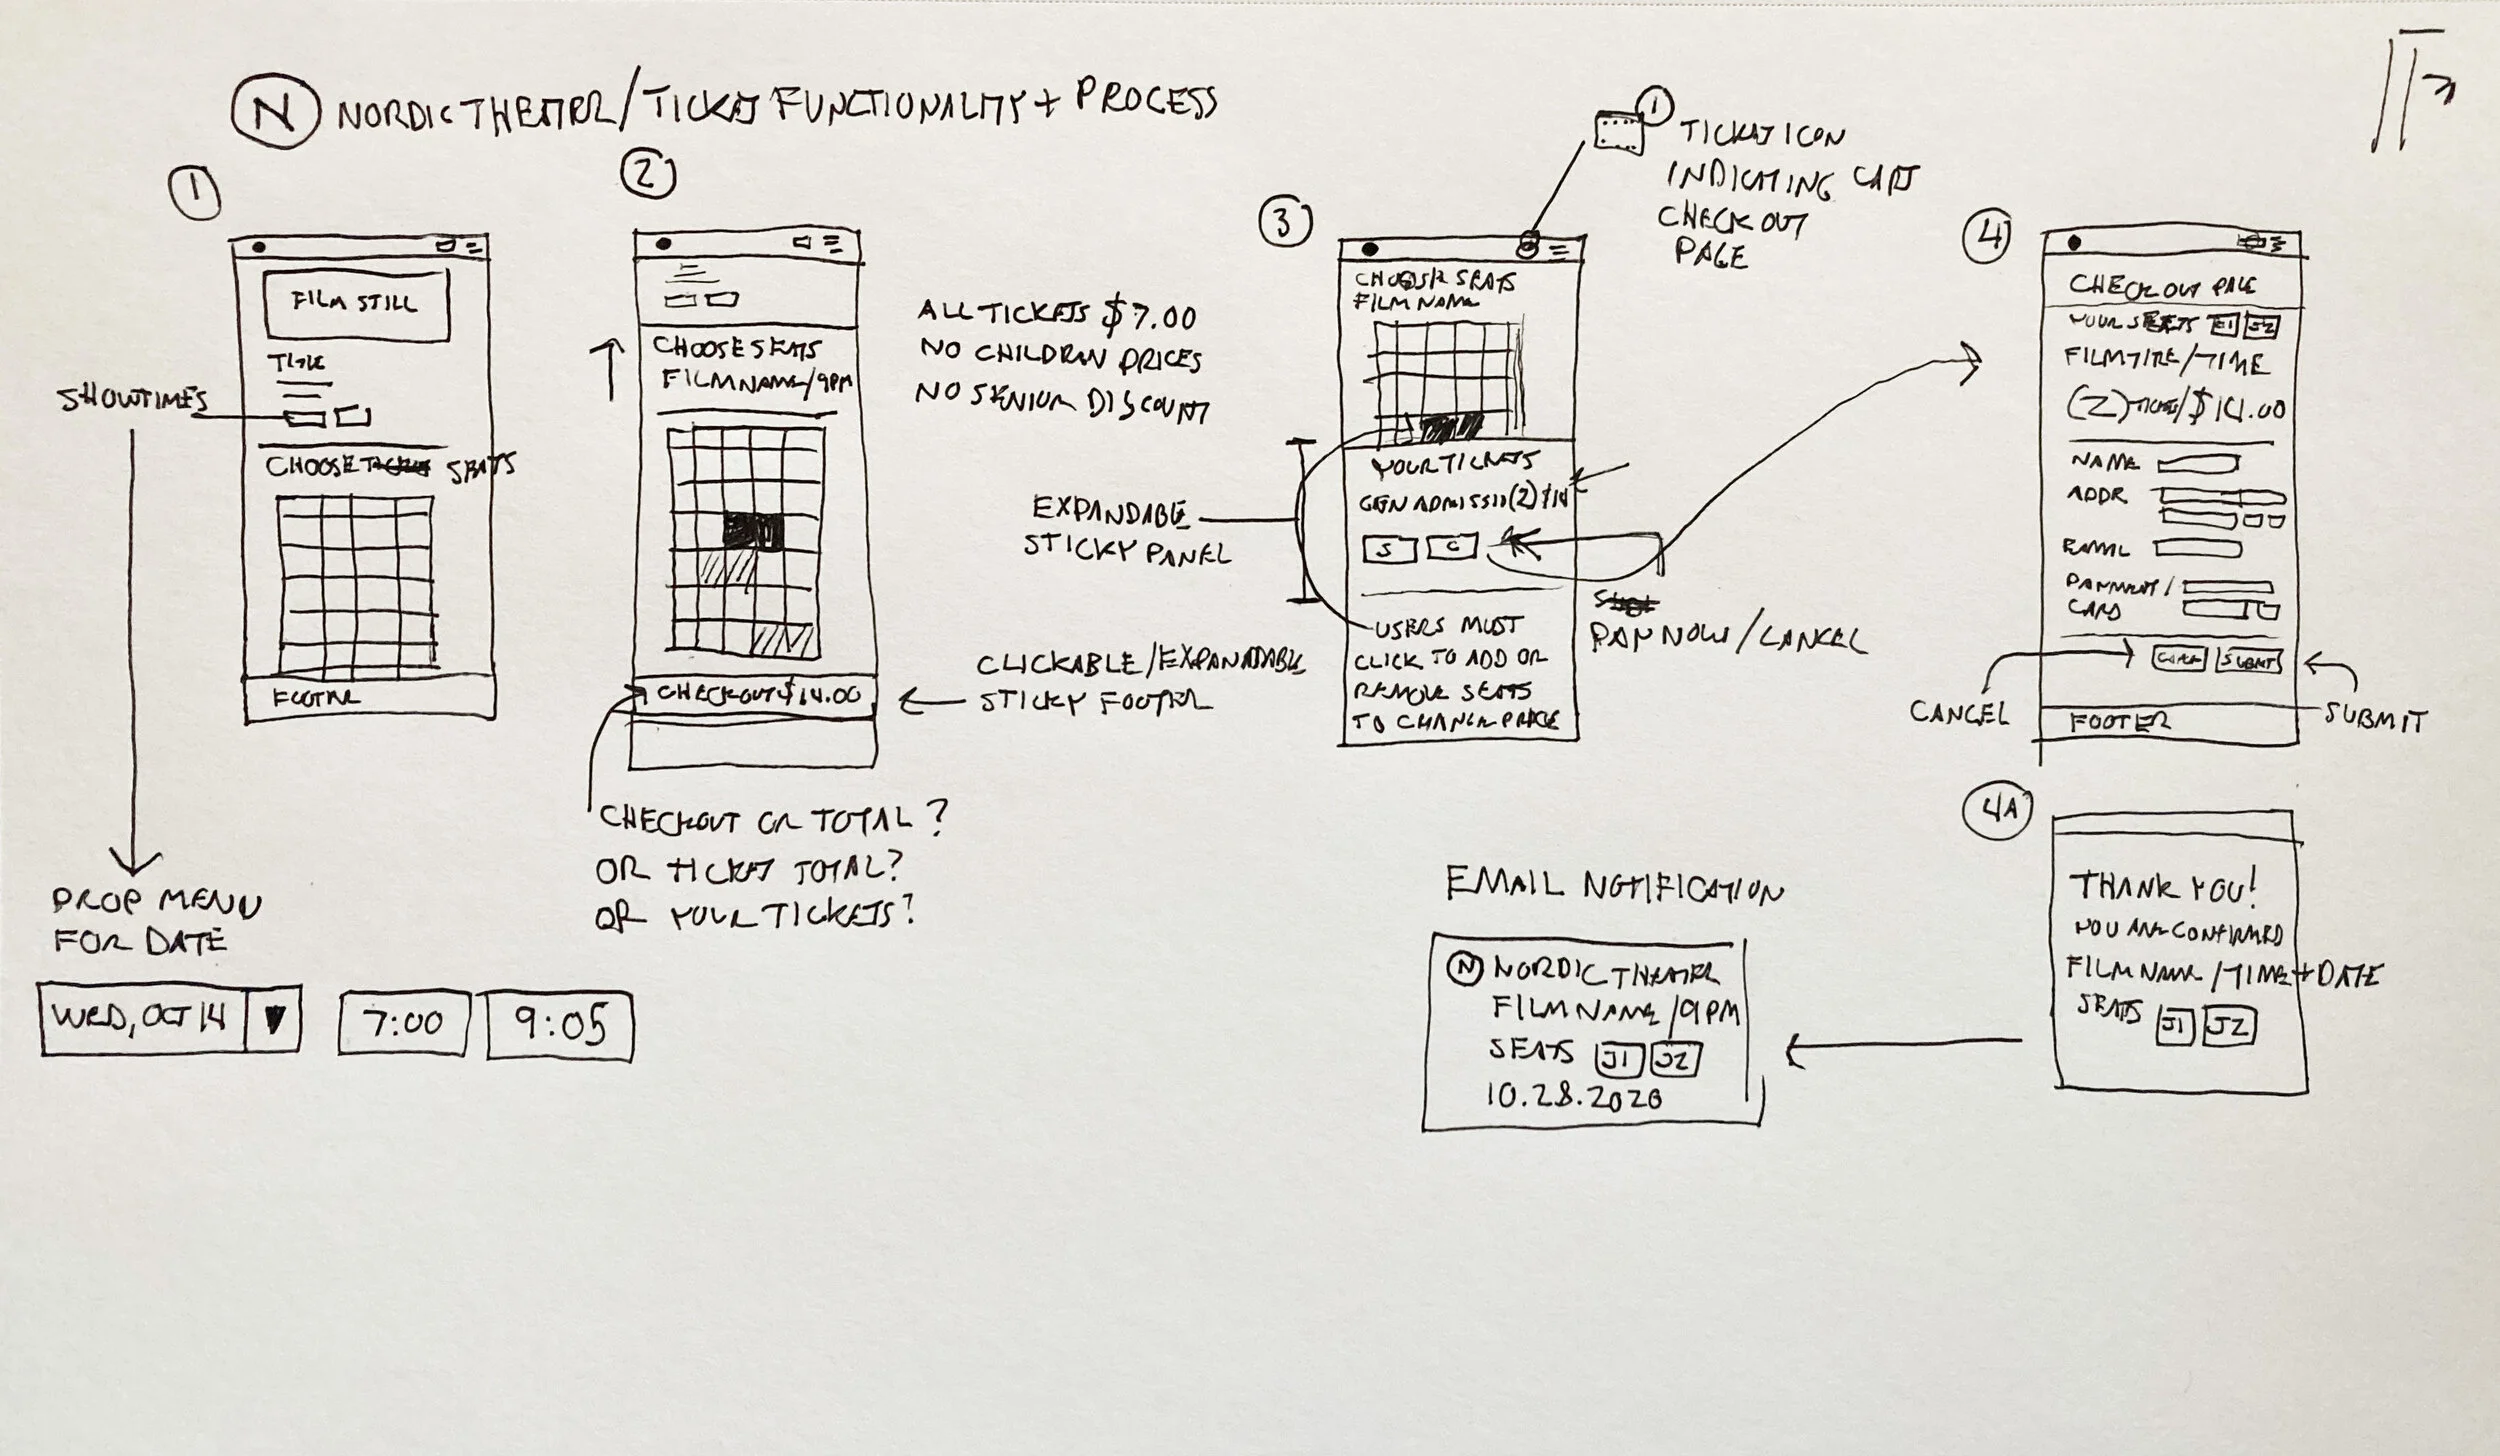 N NORDIC THEATER/TICKET FUNCTIONALITY + PROCESS
1
FILM STILL
TITLE
SHOWTIMES
CHOOSE SEATS
FOOTER
DROP MENU
FOR DATE
WED, OCT 14
7:00
9:05
2
CHOOSE SEATS
FILM NAME/9PM
CHECKOUT $14.00
CHECKOUT OR TOTAL?
OR TICKET TOTAL?
OR YOUR TICKETS?
ALL TICKETS $7.00
NO CHILDREN PRICES
NO SENIOR DISCOUNT
CLICKABLE/EXPANADABLE
STICKY FOOTER
3
1
TICKET ICON
INDICATING CART
CHECK OUT
PAGE
CHOOSE SEATS
FILM NAME
YOUR TICKETS
GEN ADMISSION (2) $14
S C
EXPANDABLE
STICKY PANEL
USERS MUST
CLICK TO ADD OR
REMOVE SEATS
TO CHANGE PRICE
PAY NOW/CANCEL
4
CHECK OUT PAGE
YOUR SEATS J2
FILM TITLE/TIME
(2) TICKETS/$14.00
NAME
ADDR
EMAIL
PAYMENT/
CARD
CANCEL SUBMIT
CANCEL
SUBMIT
FOOTER
4A
THANK YOU!
YOU ARE CONFIRMED
FILM NAME/TIME + DATE
SEATS J1 J2
EMAIL NOTIFICATION
N NORDIC THEATER
FILM NAME/9PM
SEATS J1 J2
10.28.2020